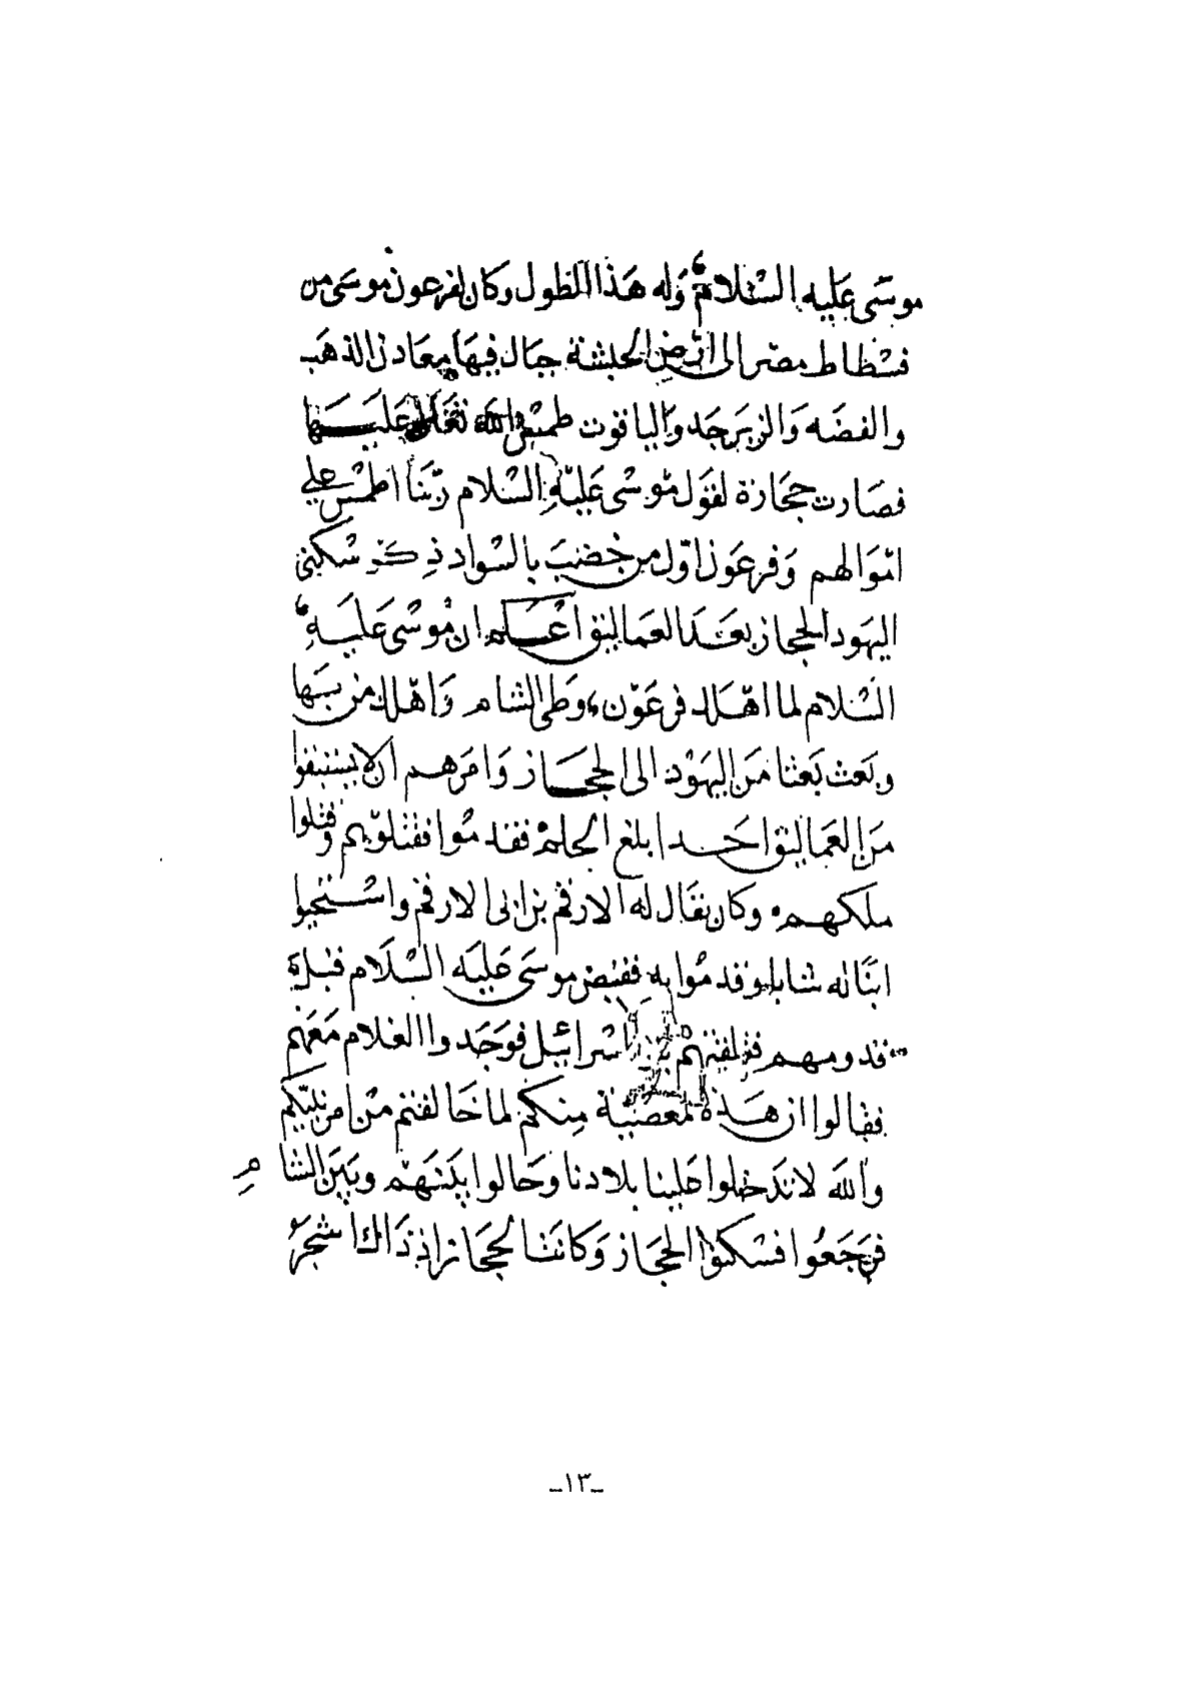 موسَى عَليه السَّلام وَله هَذا الطول وكان لفرعون موسَى من
فسْطاط مصْر الى ارْض الحبشة جبَال فيهَا معَادن الذهَب
والفضَه وَالزبَرجَد وَاليا قوت طمسْ الله تعَالى عَليَها
فصَارت حجَارَة لقوَل موْسْى عَليْه السْلام رّبنَا اطمسْ على
امْوَالهم وَفرعَون اوْل من خضبَ بالسْواد ذِكَر سْكنى
اليهَود الحجاز بعَدَ العمَاليق اعْلم ان مُوسْى عَليَهِ
السْلام لما اهْلك فرعَوْن وطى الشام وَاهْلك من بهَا
وبعَث بَعثا مَن اليهَوْد الى الحجاز وَامَرهم ان لا يستبقوا
مَن العمَاليق احَدا بلغ الحلم فقد مُوا فقتلوْهم وقتلوا
ملكهم وكان يقَال له الارقم بن ابى الارقم واسْتحيوا
ابنَا له شابا وقد مُوا به فقبض موسَى عَليَه السْلَام قبل
قدومهم فتلقتهمْ بنو اسْرائيل فوَجَد وا الغلام مَعَهم
فقالوا ان هَذه لمعصْيَة مِنكم لما خَالفتم مْن امر نبيّكم
والله لا تدَخلوا علينا بلادنا وحَالوا بيَنهَمْ وبيَن الشام
فرَجَعُوا فسْكنوا الحجَاز وَكانَت الحجَاز اذ ذَاك اشجَر
-١٣-